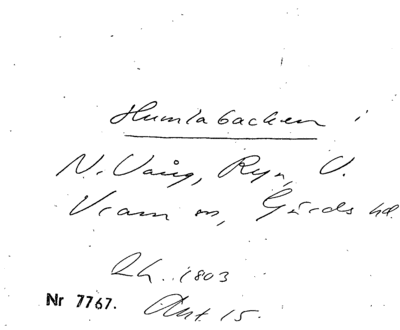 Humlabacken i
N. Vång, Ryn, V.
Vram sn, Gärds hd.
Lh. 1803
Nr 7767. Akt. 15.